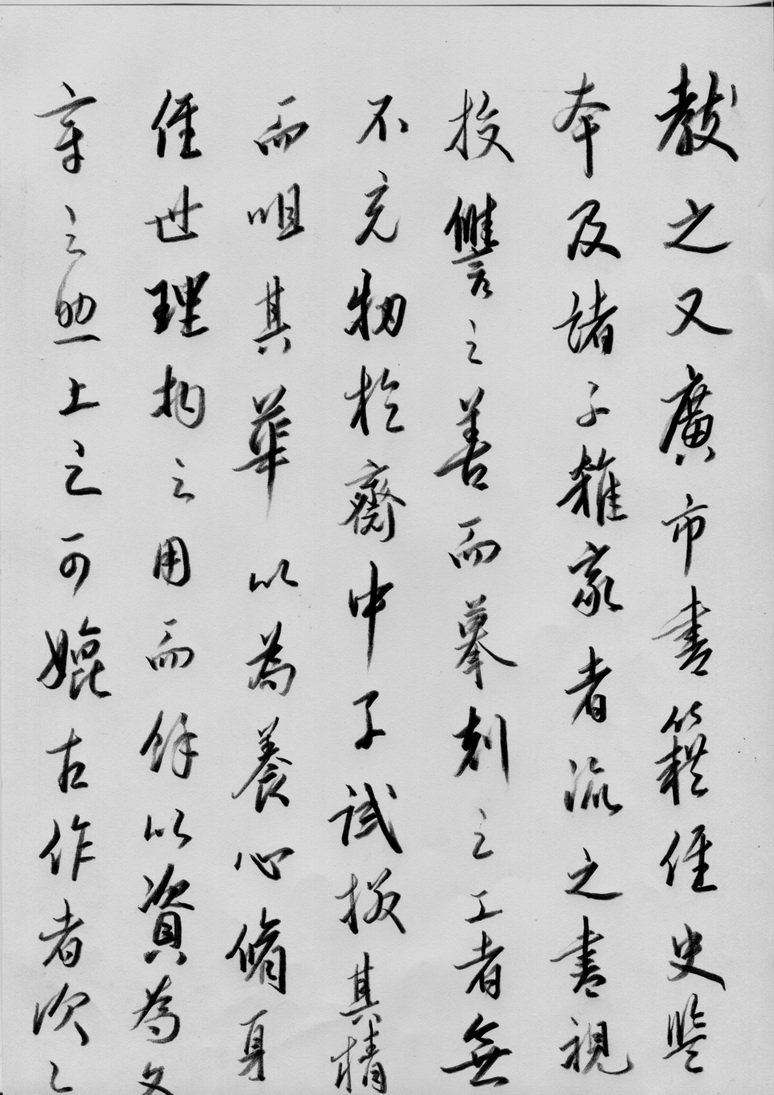 教之又廣市書籍經史監
本及諸子雜家者流之書視
校讐之善而摹刻之工者無
不充牣於齋中子試掇其精
而咀其華以為養心脩身
經世理物之用而餘以資為文
章之助上之可媲古作者次之